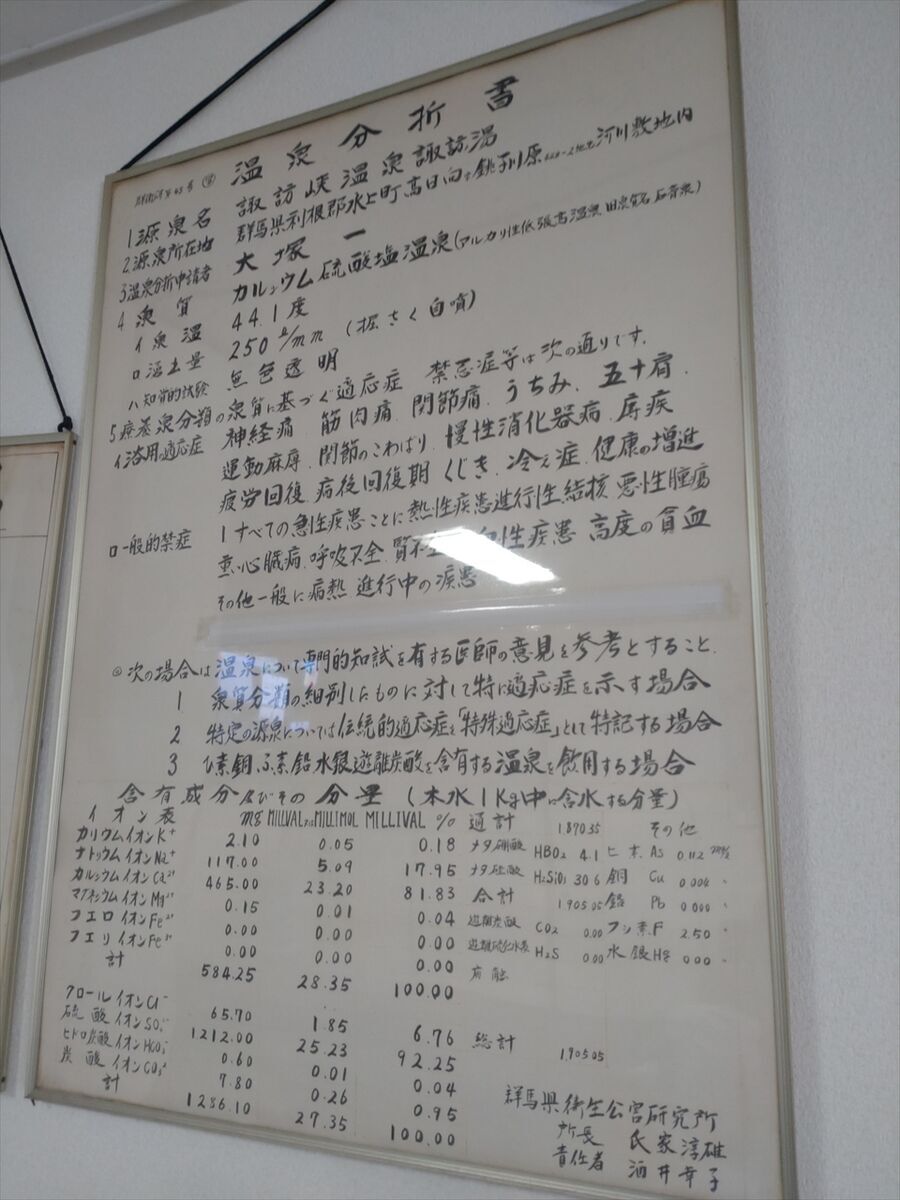 温泉分折書
1 源泉名 諏訪峡温泉諏訪湯
2. 源泉所在地 群馬県利根郡水上町高日向字銚子川原 河川敷地内
3 温泉分折申請者 大塚 一
4 泉質 カルシウム硫酸塩温泉(アルカリ性低張高温泉 旧泉質名 石膏泉)
イ 泉温 44.1度
ロ 湧出量 250 ℓ/mm (掘さく自噴)
ハ 知覚的試験 無色透明
5 療養泉分類の泉質に基づく適応症 禁忌症等は次の通りです.
イ 浴用の適応症 神経痛 筋肉痛. 関節痛. うちみ. 五十肩.
運動麻痺. 関節のこわばり. 慢性消化器病. 痔疾
疲労回復 病後回復期 くじき. 冷え症. 健康の増進
ロ 一般的禁症 1 すべての急性疾患ことに熱性疾患進行性結核 悪性腫瘍
重い心臓病. 呼吸不全. 腎不 性疾患 高度の貧血
その他一般に病熱 進行中の疾患
◎次の場合は温泉について専門的知試を有する医師の意見を参考とすること.
1 泉質分類の細別したものに対して特に適応症を示す場合
2 特定の源泉については伝統的適応症を「特殊適応症」として特記する場合
3 ひ素銅.ふ素鉛水銀遊離炭酸を含有する温泉を飲用する場合
含有成分及びその分量 (本水1Kg中に含水する分量)
イオン表 mg MILLVAL MILLIMOL MILLIVAL %
カリウムイオンK⁺ 2.10 0.05 0.18
ナトリウムイオンNa⁺ 117.00 5.09 17.95
カルシウムイオンCa²⁺ 465.00 23.20 81.83
マグネシウムイオンMg²⁺ 0.15 0.01 0.04
フエロイオンFe²⁺ 0.00 0.00 0.00
フエリイオンFe³⁺ 0.00 0.00 0.00
計 584.25 28.35 100.00
クロールイオンCl⁻ 65.70 1.85 6.76
硫酸イオンSO₄ 1212.00 25.23 92.25
ヒドロ炭酸イオンHCO₃⁻ 0.60 0.01 0.04
炭酸イオンCO₃²⁻ 7.80 0.26 0.95
計 1286.10 27.35 100.00
通計 1870.35 その他
メタ硼酸 HBO₂ 4.1 ヒ素 As 0.112
メタ硅酸 H₂SiO₃ 30.6 銅 Cu 0.004
合計 1905.05 鉛 Pb 0.000
遊離炭酸 CO₂ 0.00 フッ素 F 2.50
遊離硫化水素 H₂S 0.00 水銀 Hg 0.00
総計 1905.05
群馬県衛生公害研究所
所長 氏家淳雄
責任者 酒井幸子